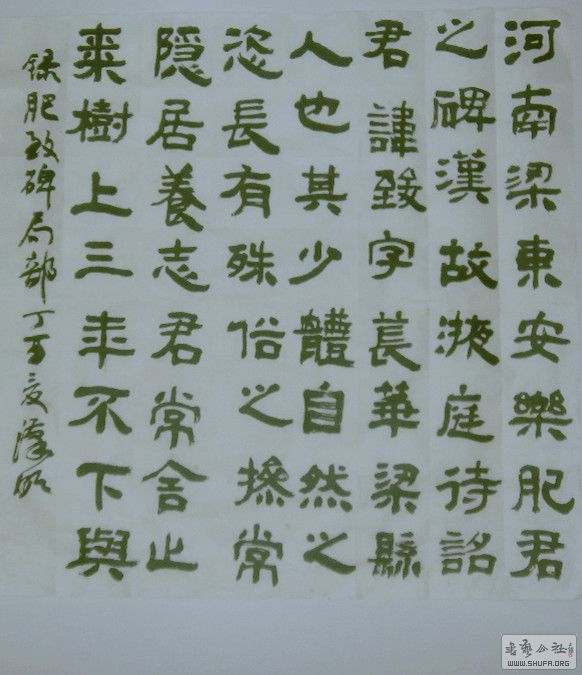 河南梁東安樂肥君
之碑漢故掖庭待詔
君諱致字萇華梁縣
人也其少體自然之
恣長有殊俗之操常
隱居養志君常舍止
棗樹上三年不下與
録肥致碑局部丁亥夏漢
書藝公社
WWW.SHUFA.ORG